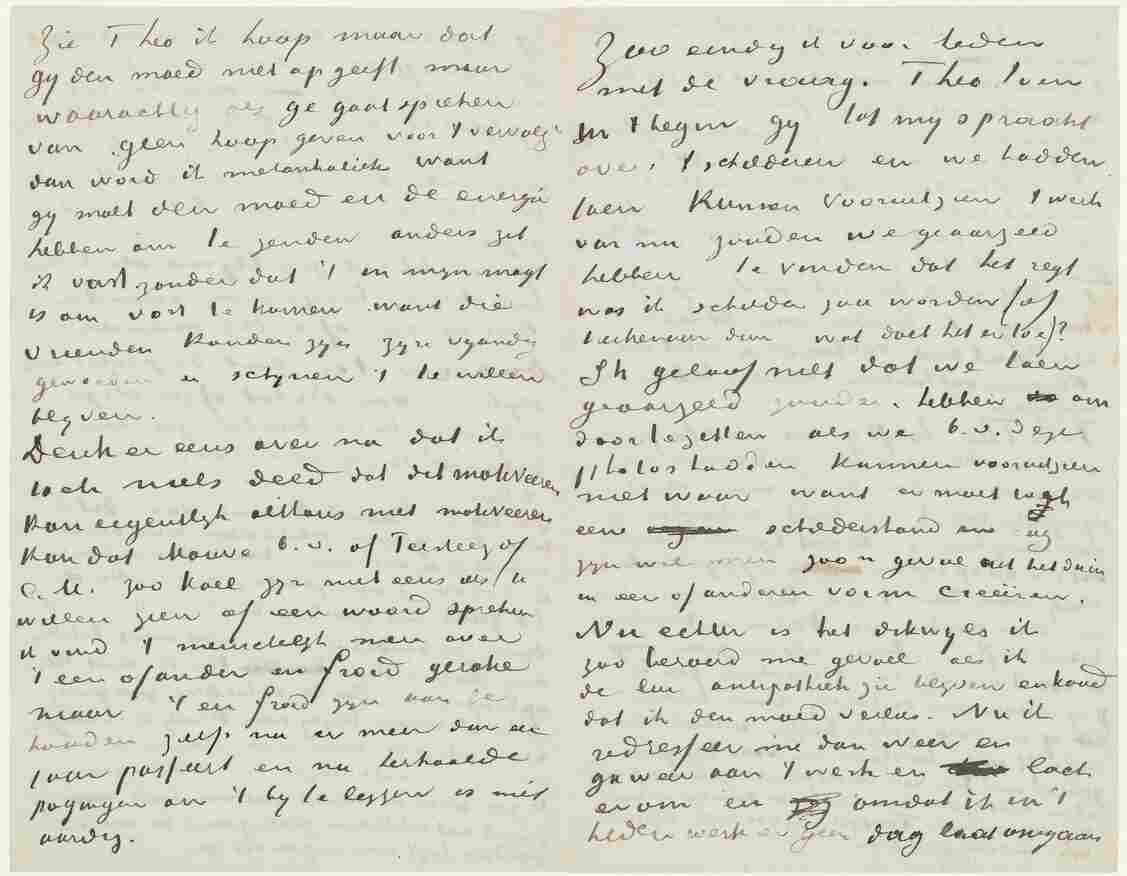 Zie Theo ik hoop maar dat
gy den moed niet op geeft maar
waarachtig als ge gaat spreken
van geen hoop geven voor 't vervolg
dan word ik melankoliek want
gy moet den moed en de energie
hebben om te zenden anders zit
ik vast zonder dat 't in myn magt
is om voort te komen want die
vrienden konden zyn zyn vyandig
geworden en schynen 't te willen
blyven.
Denk er eens over na dat ik
toch niets deed dat dit motiveeren
kan eigentlyk althans niet motiveeren
kan dat Mauve b.v. of Tersteeg of
C.M. zoo koel zyn niet eens iets te
willen zien of een woord spreken
ik vind 't menschelyk men over
't een of ander en froid gerake
maar 't en froid zyn aan te
houden zelfs nu er meer dan een
jaar passeert en na herhaalde
pogingen om 't by te leggen is niet
aardig.
Zoo eindig ik voor heden
met de vraag. Theo toen
in 't begin gy tot my spraakt
over 't schilderen en we hadden
toen kunnen vooruitzien 't werk
van nu zouden we geaarzeld
hebben te vinden dat het regt
was ik schilder zou worden (of
teekenaar dan wat doet het er toe)?
Ik geloof niet dat we toen
geaarzeld zouden hebben om
door te zetten als we b.v. deze
photos hadden kunnen voorzien
niet waar want er moet toch
een schildershand en oog
zyn wil men zoo'n geval uit het duin
in een of anderen vorm creëeren.
Nu echter is het dikwyls ik
zoo beroerd me gevoel als ik
de lui antipathiek zie blyven en koud
dat ik den moed verlies. Nu ik
redresseer me dan weer en
ga weer aan 't werk en lach
er om en omdat ik in 't
heden werk en geen dag laat omgaan